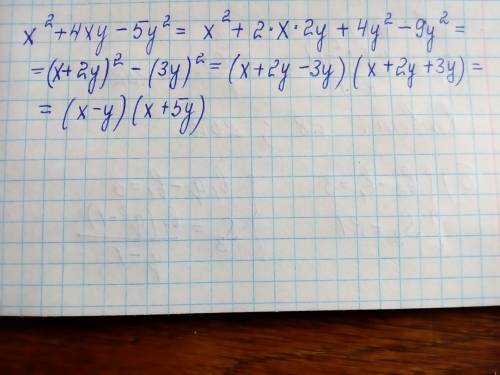 x² + 4xy - 5y² = x² + 2·x·2y + 4y² - 9y² =
= (x+2y)² - (3y)² = (x+2y-3y)(x+2y+3y) =
= (x-y)(x+5y)